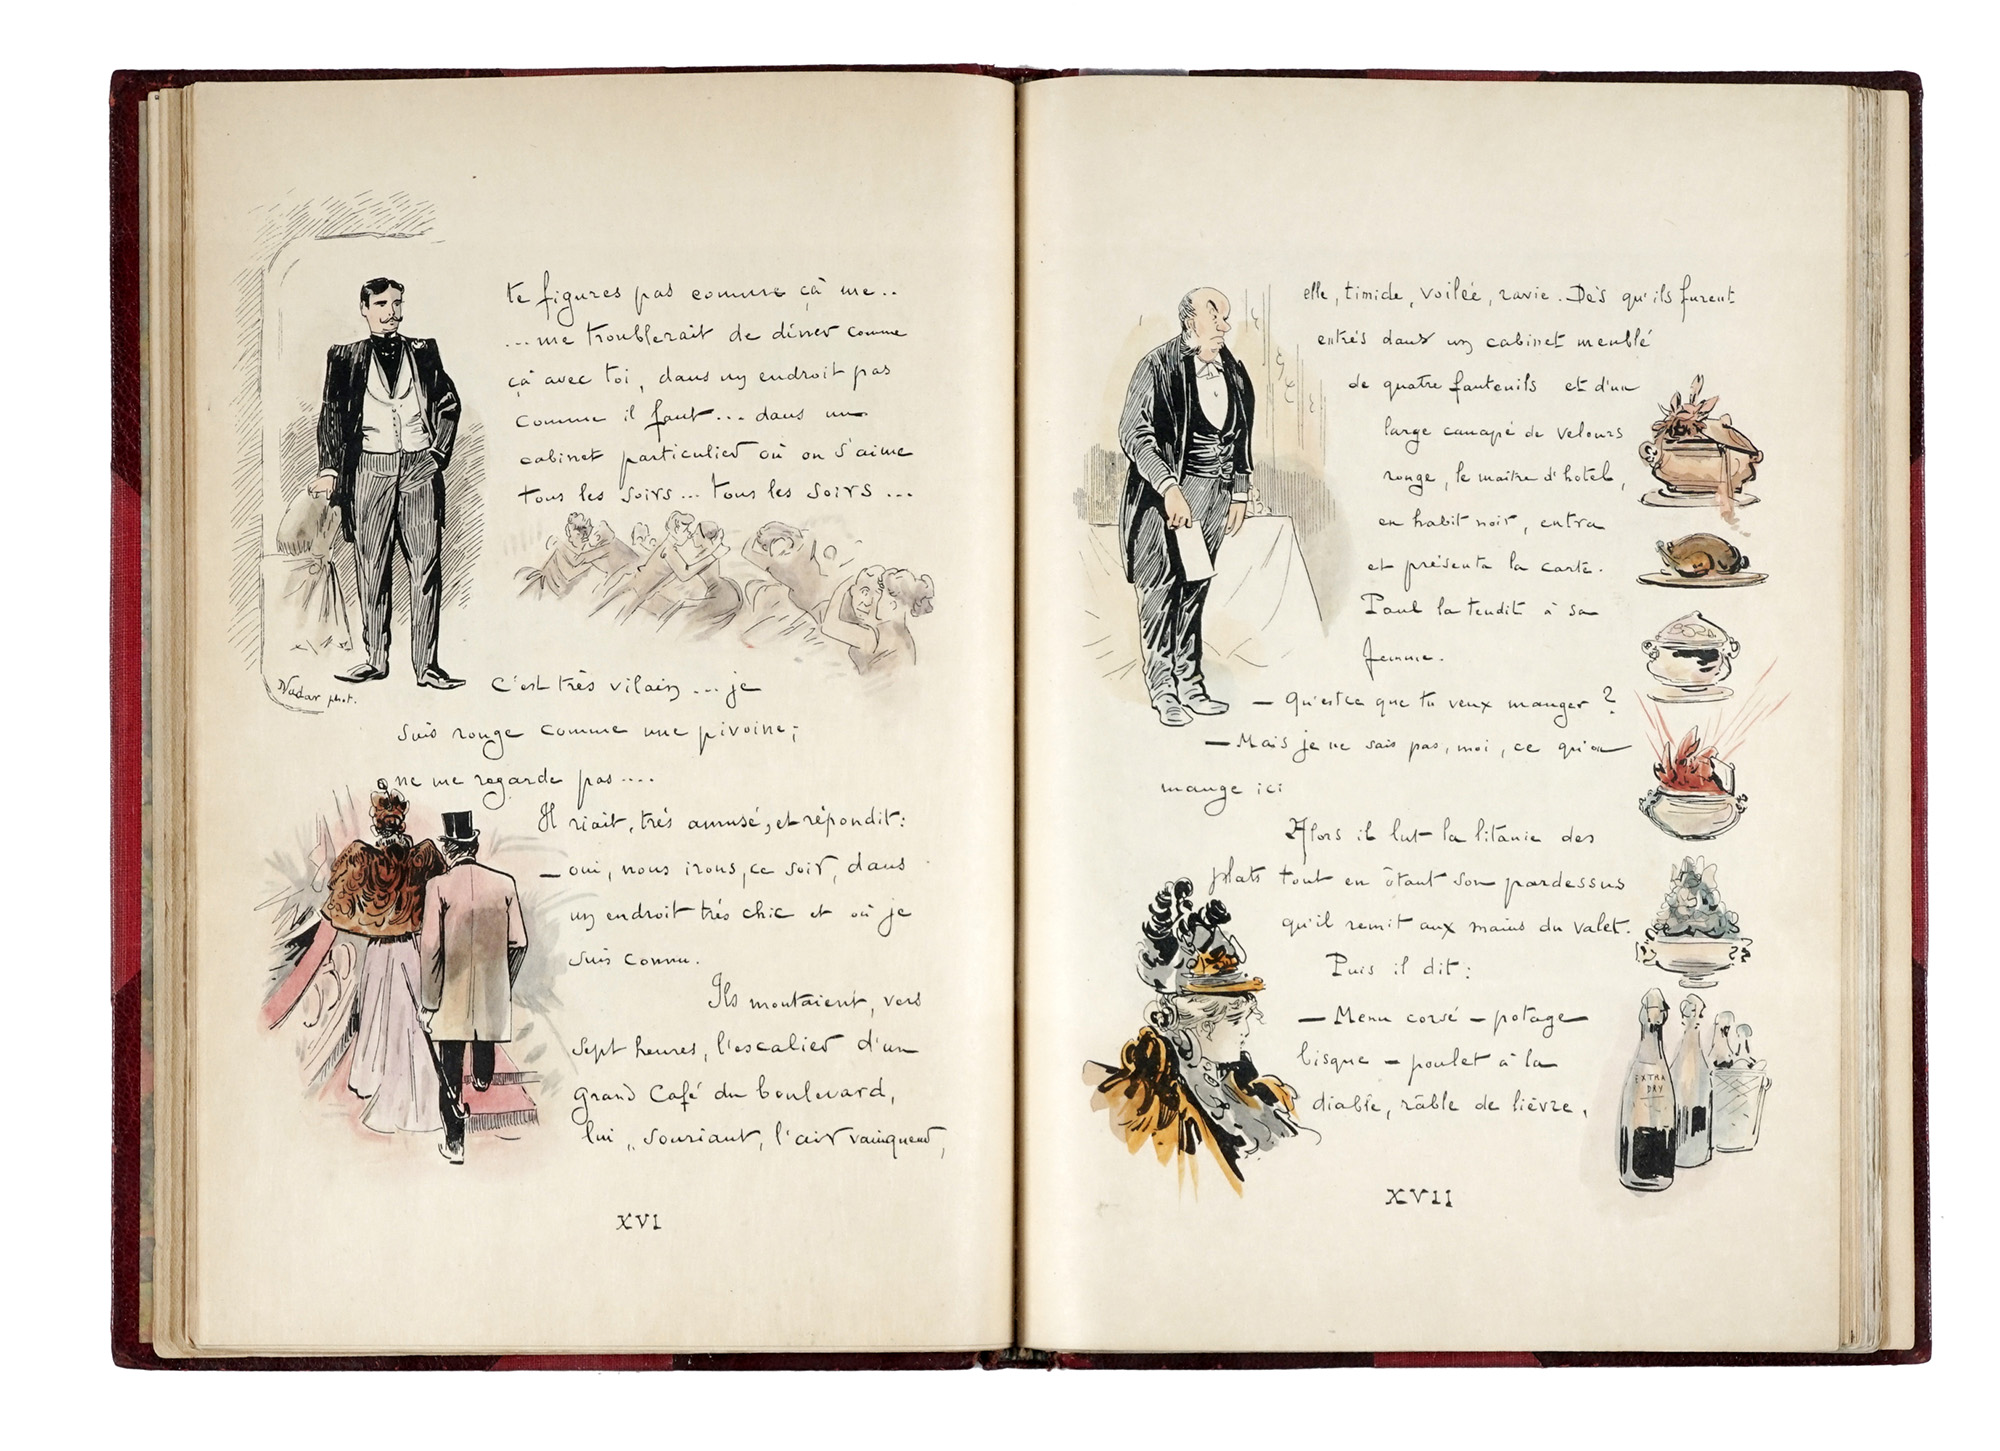 te figures pas comme çà me..
... me troublerait de dîner comme
çà avec toi, dans un endroit pas
comme il faut... dans un
cabinet particulier où on s'aime
tous les soirs... tous les soirs ...
Nadar phot.
C'est très vilain ... je
suis rouge comme une pivoine;
ne me regarde pas....
Il riait, très amusé, et répondit:
— oui, nous irons, ce soir, dans
un endroit très chic et où je
suis connu.
Ils montaient, vers
sept heures, l'escalier d'un
Grand Café du boulevard,
lui, souriant, l'air vainqueur,
XVI
elle, timide, voilée, ravie. Dès qu'ils furent
entrés dans un cabinet meublé
de quatre fauteuils et d'un
large canapé de velours
rouge, le maître d'hotel,
en habit noir, entra
et présenta la carte.
Paul la tendit à sa
femme.
— Qu'est ce que tu veux manger ?
— Mais je ne sais pas, moi, ce qu'on
mange ici
Alors il lut la litanie des
plats tout en ôtant son pardessus
qu'il remit aux mains du valet.
Puis il dit :
— Menu corsé — potage
bisque — poulet à la
diable, râble de lièvre,
EXTRA
DRY
XVII